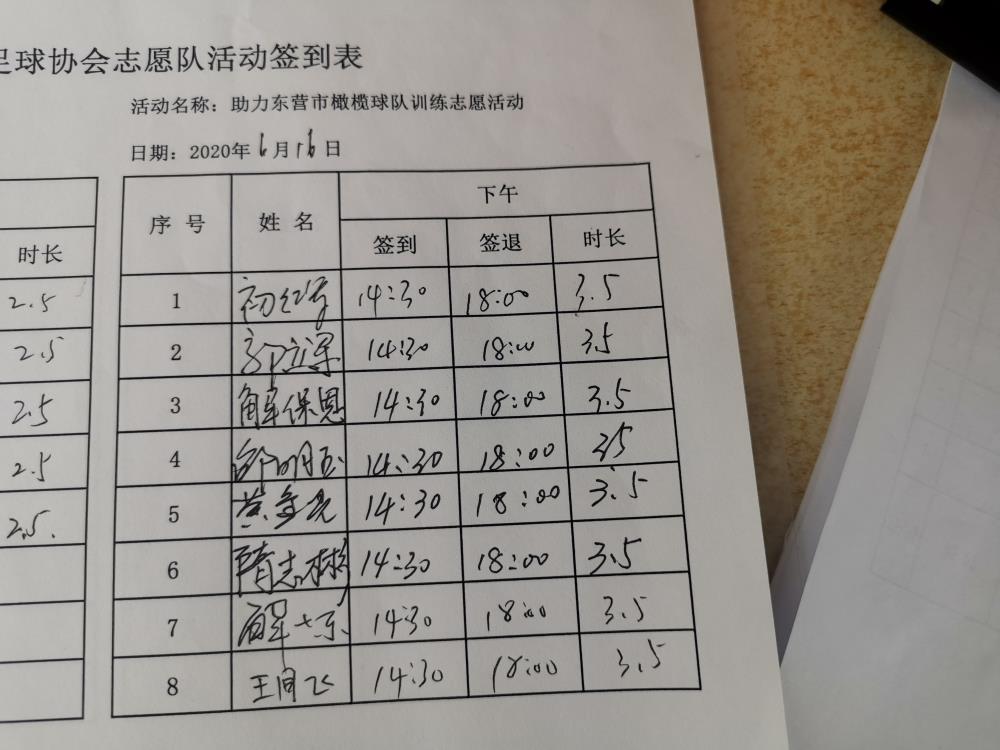 足球协会志愿队活动签到表
活动名称：助力东营市橄榄球队训练志愿活动
日期：2020年6月16日
下午
序号 姓名 签到 签退 时长
时长
2.5
2.5
2.5
2.5
2.5.
1 14:30 18:00 3.5
2 郭立军 14:30 18:00 3.5
3 解保恩 14:30 18:00 3.5
4 14:30 18:00 3.5
5 14:30 18:00 3.5
6 隋志彬 14:30 18:00 3.5
7 14:30 18:00 3.5
8 14:30 18:00 3.5